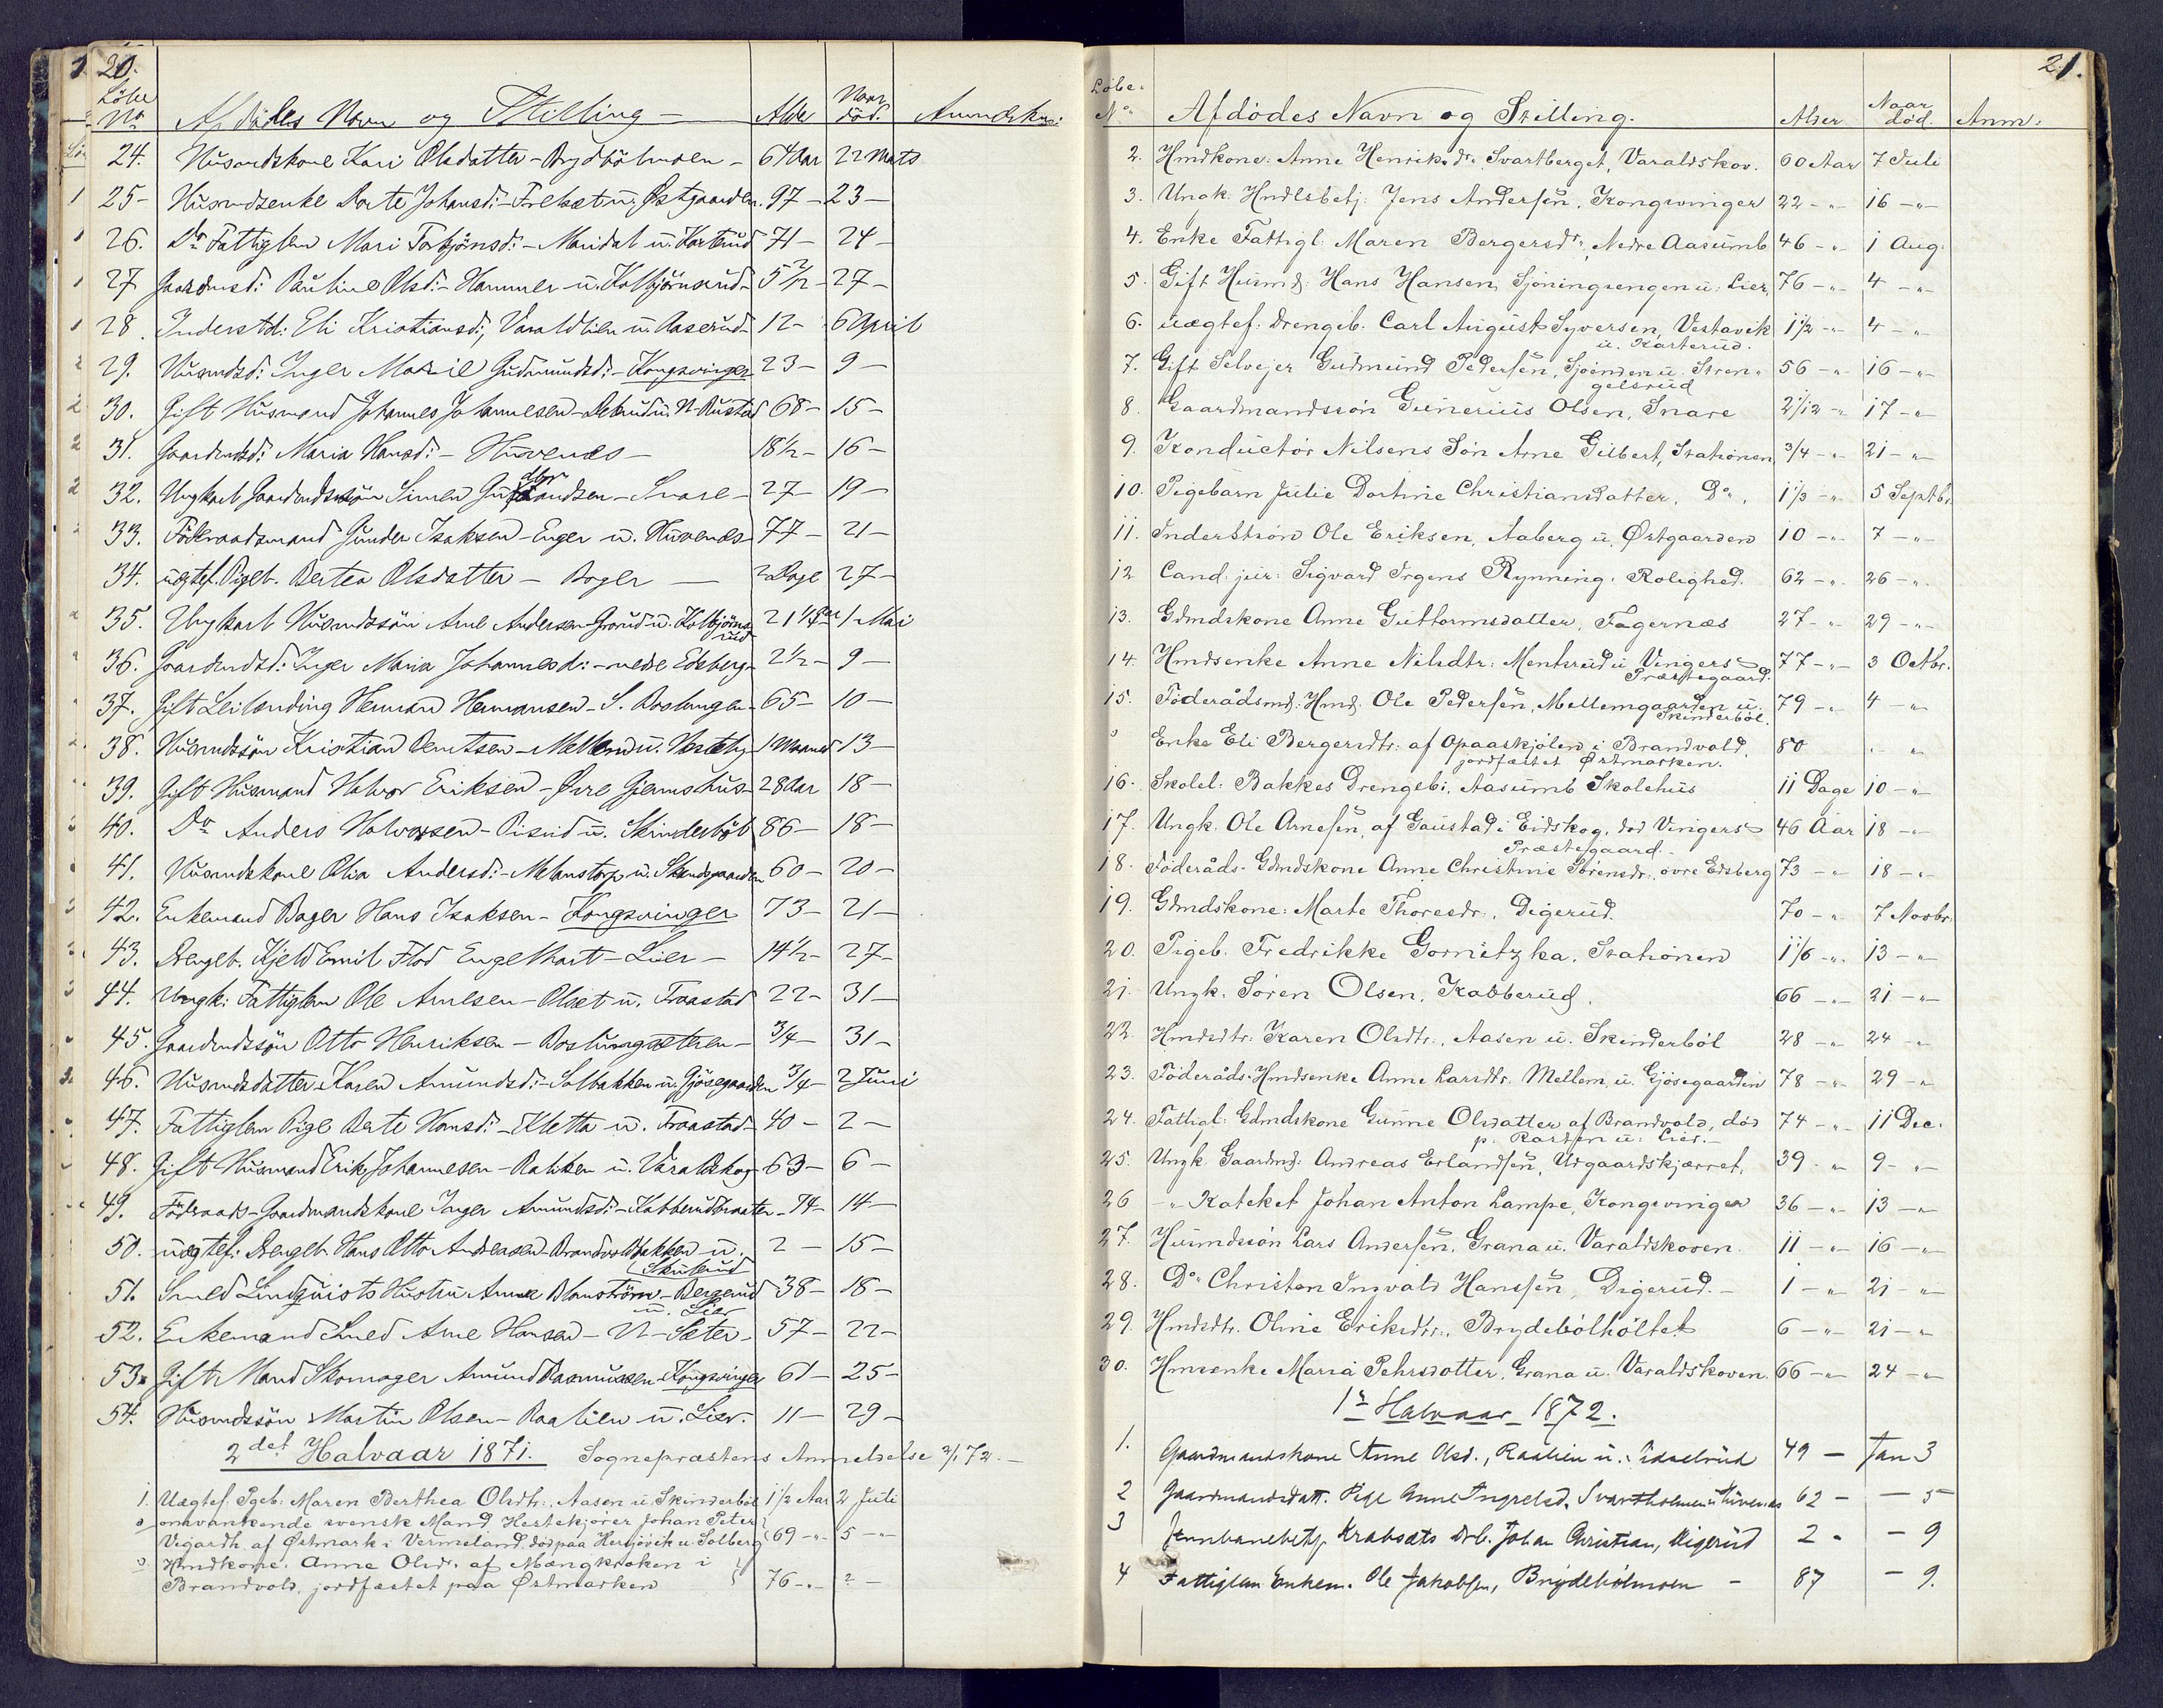 20.
Löbe No Afdödes Navn og Stilling Alder Naar död. Anmærkn:
24. Husmandskone Kari Olsdatter - Brydbölmoen - 64 Aar 22 Mats
25 - Husmdsenke Dorte Johansd: - u. Østgaarden. 97 - 23 -
26. Do Fattiglem Mari Torbjönsd: - Maridal u. Karterud 71 - 24 -
27 Gaardmsd: Pauline Olsd: - Hammer u. Kolbjörnsrud - 5 1/2 - 27 -
28. Inderstd: Eli Kristiansd:, Varaldlien u. Aaserud - 12 - 6 April
29. Husmdsd: Inger Marie Gudmundsd: - Kongsvinger 23 - 9 -
30. Gift Husmand Johannes Johannesen - u. N. Rustad 68 - 15 -
31. Gaardmdsd: Maria Hansd: - Huvenæs - 18 1/2 - 16 -
32. Ungkarl Gaardmdssön Simen - Snare - 27 - 19 -
33. Föderaadsmand Gunder Isaksen - Enger u. Huvenæs - 77 - 21 -
34. uægtef. Pigeb. Bertea Olsdatter - Boger - 2 Dage 27 -
35. Ungkarl Husmdssön Arne Andersen - Grorud u. Kolbjörnsrud 21 1/4 Aar 1 Mai
36. Gaardmdsd: Inger Maria Johannesd: - nedre Edsberg - 2 1/2 - 9 -
37. Gift Leilending Herman Hermansen - S. Roslungen - 65 - 10 -
38. Husmdssön Kristian Berntsen - Mellem u. Vesteby - 1 Maaned 13 -
39. Gift Husmand Halvor Eriksen - Øvre Gjermshus - 28 Aar 18 -
40. Do Anders Halvorsen - Pisrud u. Skinderböl 86 - 18 -
41. Husmdskone Olia Andersd: - Melanstorp u. Skandsgaarden 60 - 20 -
42. Enkemand Bager Hans Isaksen - Kongsvinger 73 - 21 -
43. Drengeb. Kjeld Emil Flod Engelhart - Lier - 14 1/2 - 27 -
44. Ungk: Fattiglem Ole Arnesen - Olset u. Traastad 22 - 31 -
45. Gaardmdssön Otto Henriksen - Roslungsæteren - 3/4 - 31 -
46. Husmdsdatter Karen Amundsd: - Solbakken u. Gjösegaarden 3/4 - 2 Juni
47. Fattiglem Pige Berte Hansd: - Kletta u. Traastad - 40 - 2 -
48. Gift Husmand Erik Johannesen - Rakken u. Varaldskog - 63 - 6 -
49. Föderaads-Gaardmandskone Inger Amundsd: - Kabberudbraaten - 74 - 14 -
50. uægtef. Drengeb. Hans Otto Andreasen - Brandvoldbakken u. 2 - 15 -
Skulerud
51. Smed Lindquists Hustru Anne Blomström - Bergerud 38 - 18 -
u. Lier
52. Enkemand Smed Arne Hansen - N. Sæter - 57 - 22 -
53. Gift Mand Skomager Amund Rasmussen - Kongsvinger 61 - 25 -
54. Husmdssön Martin Olsen - Raalien u. Lier. 11 - 29 -
2det Halvaar 1871. Sogneprestens Anmeldelse 2/1 72. -
1. Uægtef. Pgeb: Maren Berthea Olsdtr., Aasen u. Skinderböl 1 1/2 Aar 2 Juli
o omvankende svensk Mand Hestekjører Johan Peter
Vegardh af Østmark i Vermeland, död paa Hersjövik u. Solberg 69 -"- 5 -"-
o Hmdkone. Anne Olsdr. af Mængkroken i
Brandvold, jordfæstet paa Østmarken 76 -"- ? -
21.
Löbe No Afdödes Navn og Stilling. Alder Naar död. Anm:
2. Hmdkone: Anne Henriksdr. Svartberget, Varaldskov. 60 Aar 7 Juli
3. Ungk. Hndlsbetj: Jens Andersen, Kongsvinger 22 -"- 16 -"-
4. Enke Fattigl: Maren Bergersdr., Nedre Aasumb 46 -"- 1 Aug.
5. Gift Husmd: Hans Hansen, Sjöningsengen u: Lier, 76 -"- 4 -"-
6. uægtef: Drengeb: Carl August Syversen, Vestavik 1 1/2 -"- 4 -"-
u. Karterud.
7. Gift Selvejer Gudmund Pedersen, Sjöenden u. Stren- 56 -"- 16 -"-
gelsrud
8. Gaardmandssön Gunerius Olsen, Snare 2 1/12 -"- 17 -"-
9. Konductör Nilsens Sön Arne Gilbert, Stationen 3/4 -"- 21 -"-
10. Pigebarn Julie Dortine Christiansdatter, Do., 1 1/3 -"- 5 Septbr.
11. Inderstsön Ole Eriksen, Aaberg u. Østgaarden 10 -"- 7 -"-
12 Cand: jur: Sigvard Irgens Rynning. Rolighed. 62 -"- 26 -"-
13. Gdmdskone Anne Guttormsdatter, Fagernæs 27 -"- 29 -"-
14. Hmdsenke Anne Nilsdtr: Mentsrud u. Vingers 77 -"- 3 Octbr.
Præstegaard.
15. Föderådsmd. Hmd. Ole Pedersen, Mellemgaarden u. 79 -"- 4 -"-
Skinderböl.
o Enke Eli Bergersdtr: af Opaaskjölen i Brandvold. 80 " "
jordfæstet Østmarken.
16. Skolel: Bakkes Drengeb:, Aasumb Skolehus 11 Dage 10 -"-
17. Ungk. Ole Arnesen, af Gaustad i Eidskog, död Vingers 46 Aar 18 -"-
Præstegaard. -
18. Föderåds-Gdmdskone Anne Christine Sörensdr. övre Edsberg 73 -"- 18 -"-
19. Gdmdskone: Marte Thoresdr., Digerud. 70 -"- 7 Novbr.
20. Pigeb. Fredrikke Gornitzka, Stationen 1 1/6 -"- 13 -"-
21. Ungk. Sören Olsen, Kabberud. 66 -"- 21 -"-
22 Hmdsdtr: Karen Olsdtr., Aasen u. Skinderböl 28 -"- 24 -"-
23. Föderåds-Hmdsenke Anne Larsdtr. Mellem, u. Gjösegaarden 78 -"- 29 -"-
24. Fattigl: Gdmdskone Gunne Olsdatter af Brandvold, död 74 -"- 11 Dec.
p. u: Lier. -
25. Ungk. Gaardmd: Andreas Erlandsen, Udgaardskjærret, 39 -"- 9 -"-
26 -"- Kateket Johan Anton Lampe, Kongsvinger 36 -"- 13 -"-
27. Husmdssön Lars Andersen, Grana u. Varaldskoven. 11 -"- 16 -"-
28. Do. Christen Ingvald Hanssen, Digerud. - 1 -"- 21 -"-
29. Hmdsdtr. Oline Eriksdtr., Brydebölholtet 6 -"- 21 -"-
30. Hmsenke Maria Pehrsdotter, Grana u. Varaldskoven. 66 -"- 24 -"-
1ste Halvaar 1872.
1. Gaardmandskone Anne Olsd., Raalien u. 49 - Jan 3
2 Gaardmandsdatt. Pige Anne Ingrelsd. Svartholmen u. Huvenæs 62 - - 5
3 Jernbanebetj. Krabsæts Drb. Johan Christian, Digerud 2 - - 9
4 Fattiglem Enkem. Ole Jakobsen, Brydebölmoen - 87 - 9.